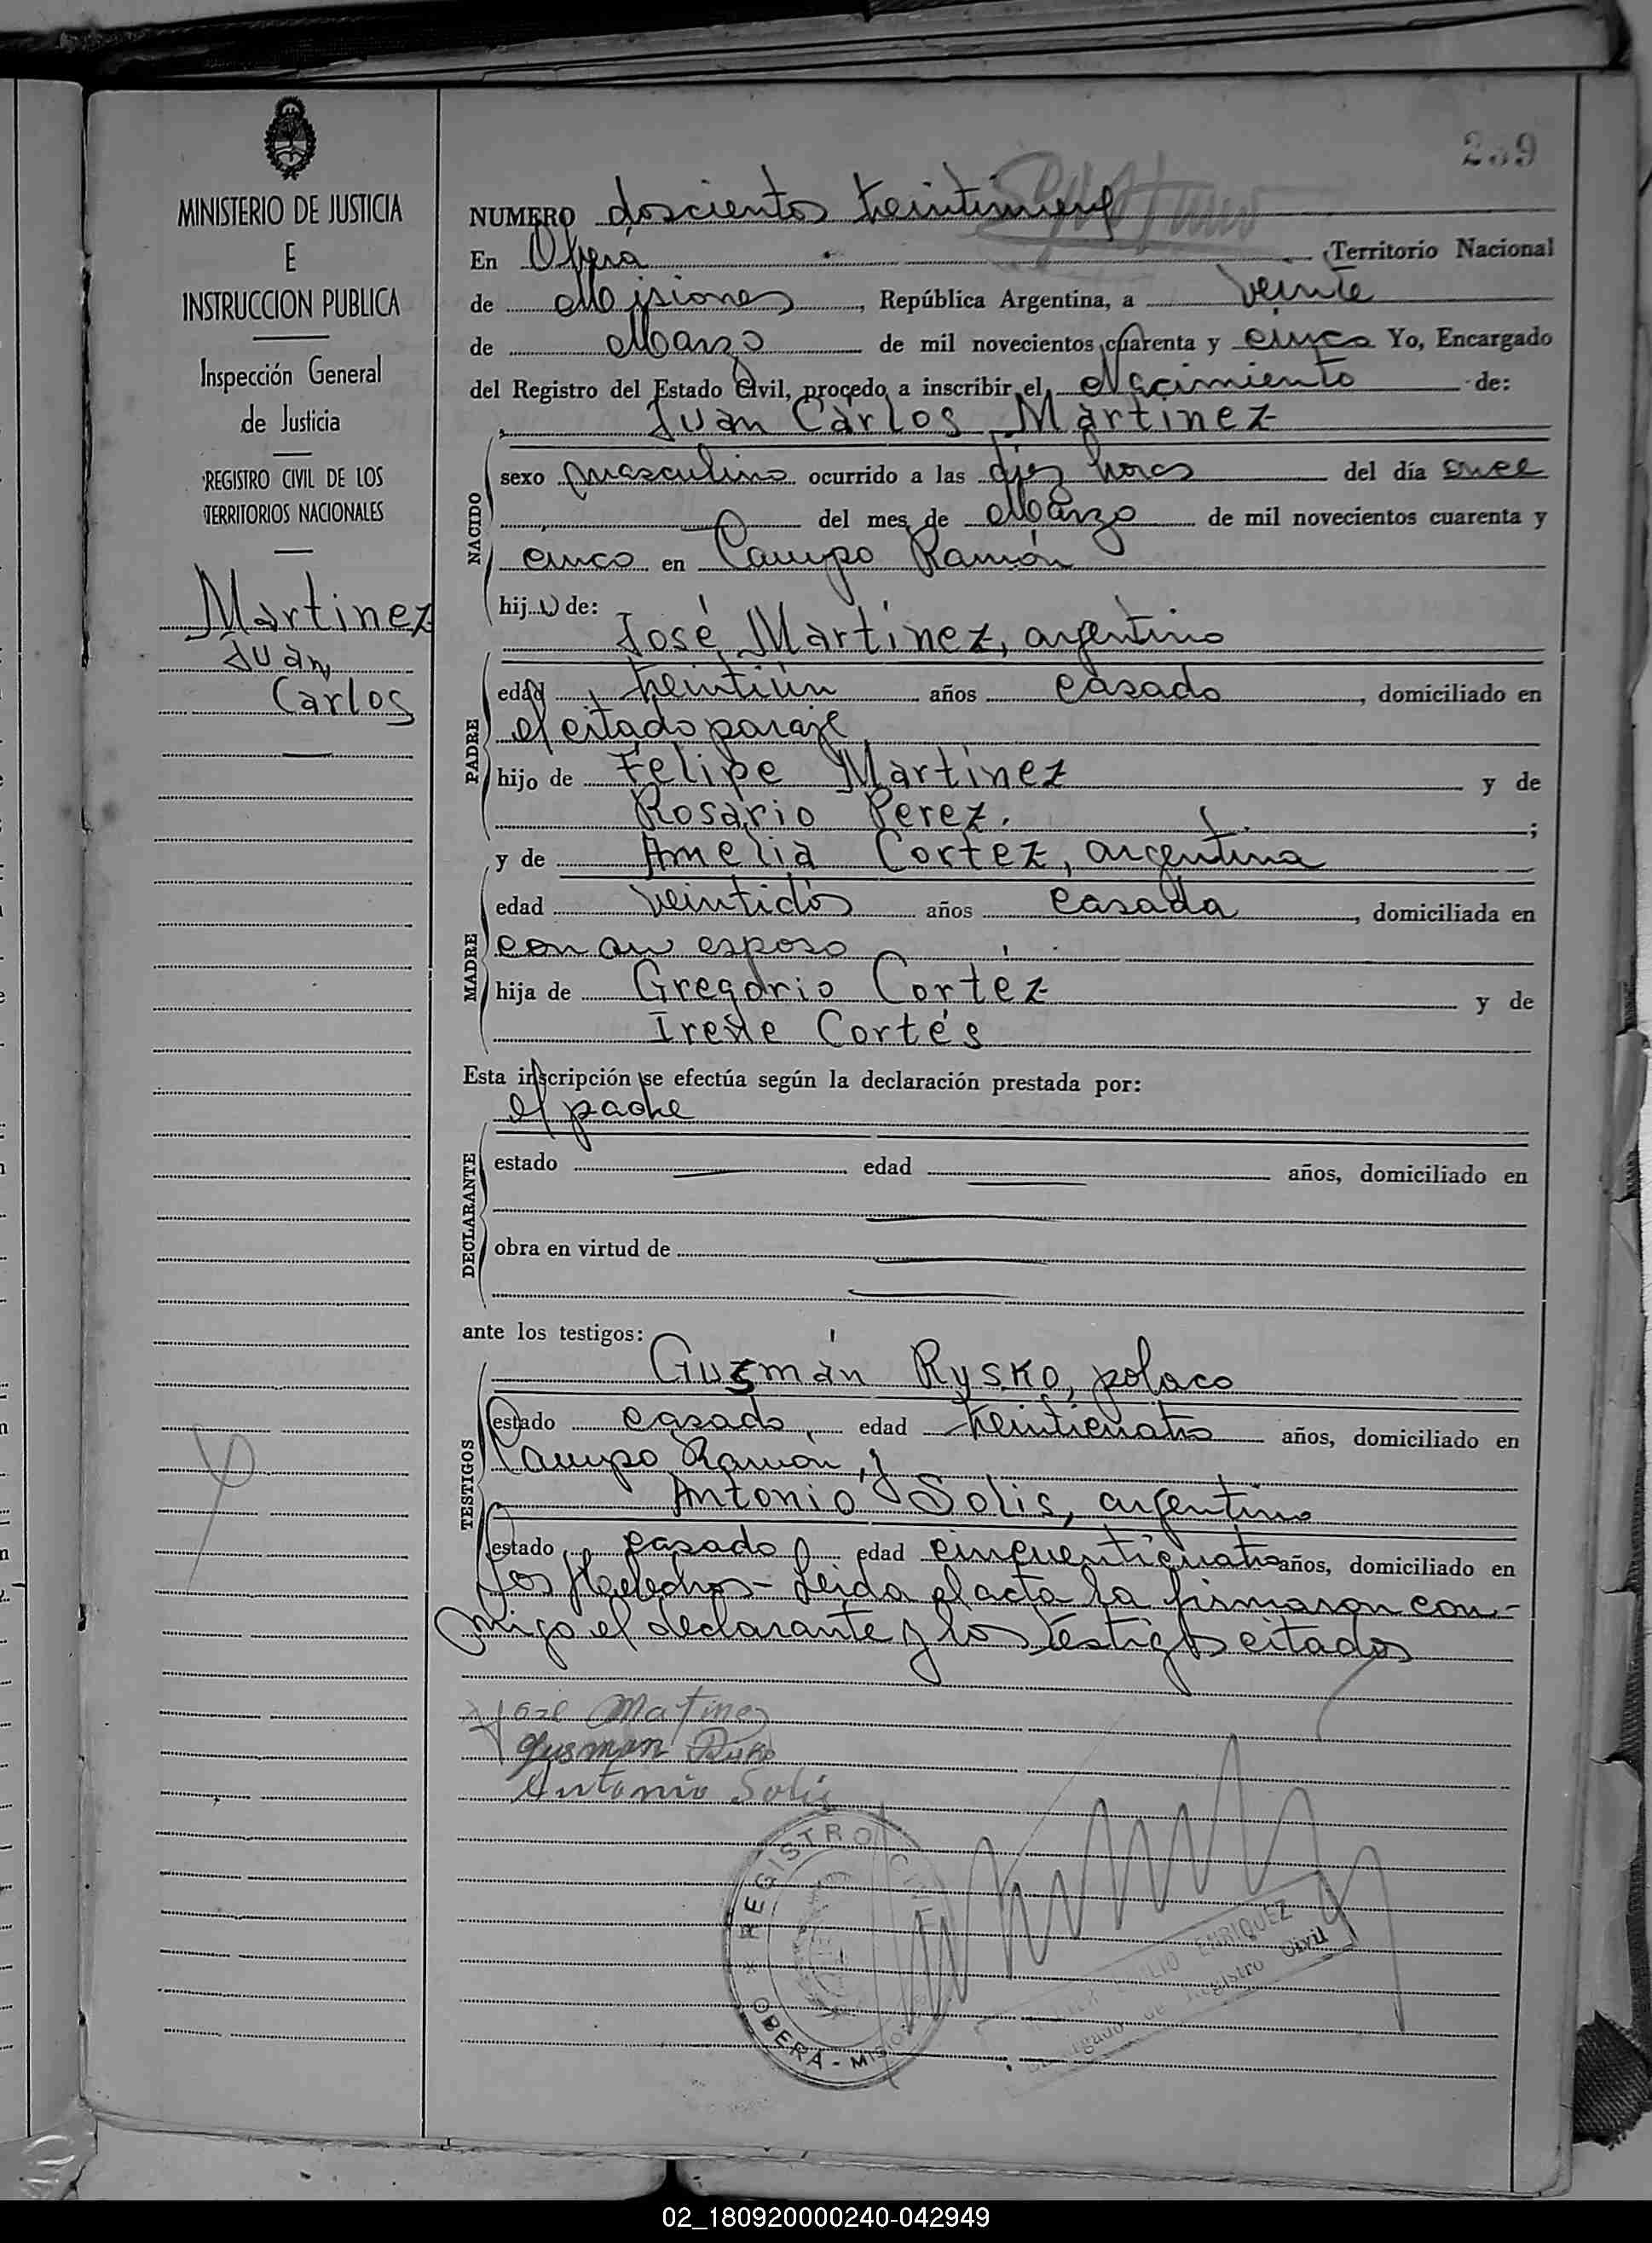 239
MINISTERIO DE JUSTICIA
E
INSTRUCCION PUBLICA
Inspección General
de Justicia
REGISTRO CIVIL DE LOS
TERRITORIOS NACIONALES
Martinez
Juan
Carlos
NUMERO doscientos treintinueve
En Oberá Territorio Nacional
de Misiones, República Argentina, a veinte
de Marzo de mil novecientos cuarenta y cinco Yo, Encargado
del Registro del Estado Civil, procedo a inscribir el Nacimiento de:
Juan Carlos Martinez
NACIDO
sexo masculino ocurrido a las diez horas del día once
del mes de Marzo de mil novecientos cuarenta y
cinco en Campo Ramón
hijo de:
José Martinez, argentino
PADRE
edad treintiún años casado, domiciliado en
el citado paraje
hijo de Felipe Martinez y de
Rosario Perez. ;
y de Amelia Cortez, argentina
MADRE
edad veintidós años casada, domiciliada en
con su esposo
hija de Gregorio Cortéz y de
Irene Cortés
Esta inscripción se efectúa según la declaración prestada por:
el padre
DECLARANTE
estado edad años, domiciliado en
obra en virtud de
ante los testigos:
Guzmán Rysko, polaco
TESTIGOS
estado casado, edad treinticuatro años, domiciliado en
Campo Ramón, y
Antonio Solis, argentino
estado casado edad cincuenticuatro años, domiciliado en
Los Helechos - Leida el acta la firmaron con-
migo el declarante y los testigos citados
José Martinez
Gusman
Antonio Solis
REGISTRO CIVIL
OBERA - MISIONES
EMILIO ENRIQUEZ
Encargado de Registro Civil
02_180920000240-042949